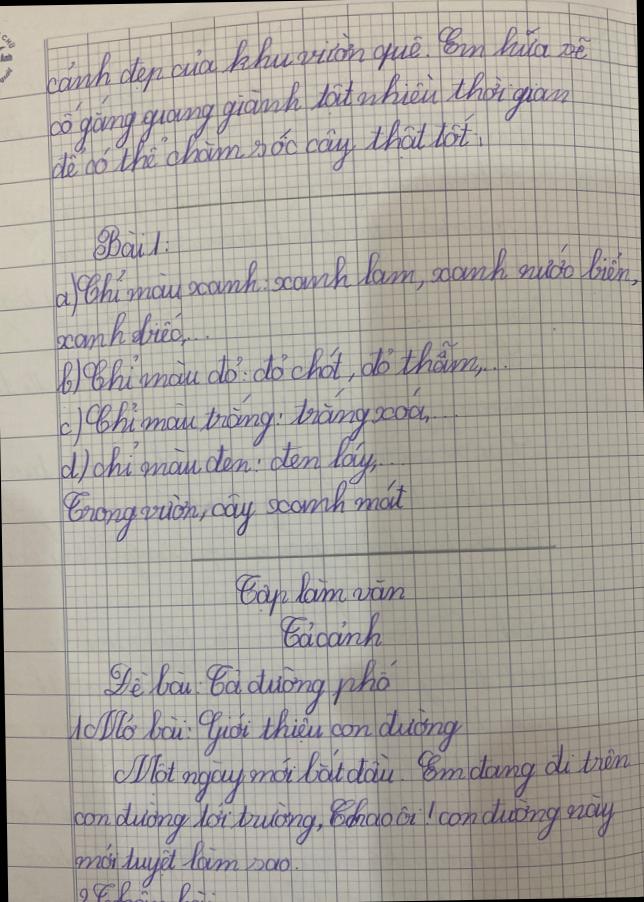 cảnh đẹp của khu vườn quê. Em hứa sẽ
cố gắng giang giành tất nhiều thời gian
để có thể chăm sóc cây thật tốt.
Bài 1:
a) Chỉ màu xanh: xanh lam, xanh nước biển,
xanh biếc,...
b) Chỉ màu đỏ: đỏ chót, đỏ thẫm,...
c) Chỉ màu trắng: trắng xoá,...
d) chỉ màu đen: đen láy,...
Trong vườn, cây xanh mát
Tập làm văn
Tả cảnh
Đề bài: Tả đường phố
1. Mở bài: Giới thiệu con đường
Một ngày mới bắt đầu. Em đang đi trên
con đường tới trường, Chao ôi! con đường này
mới tuyệt làm sao.